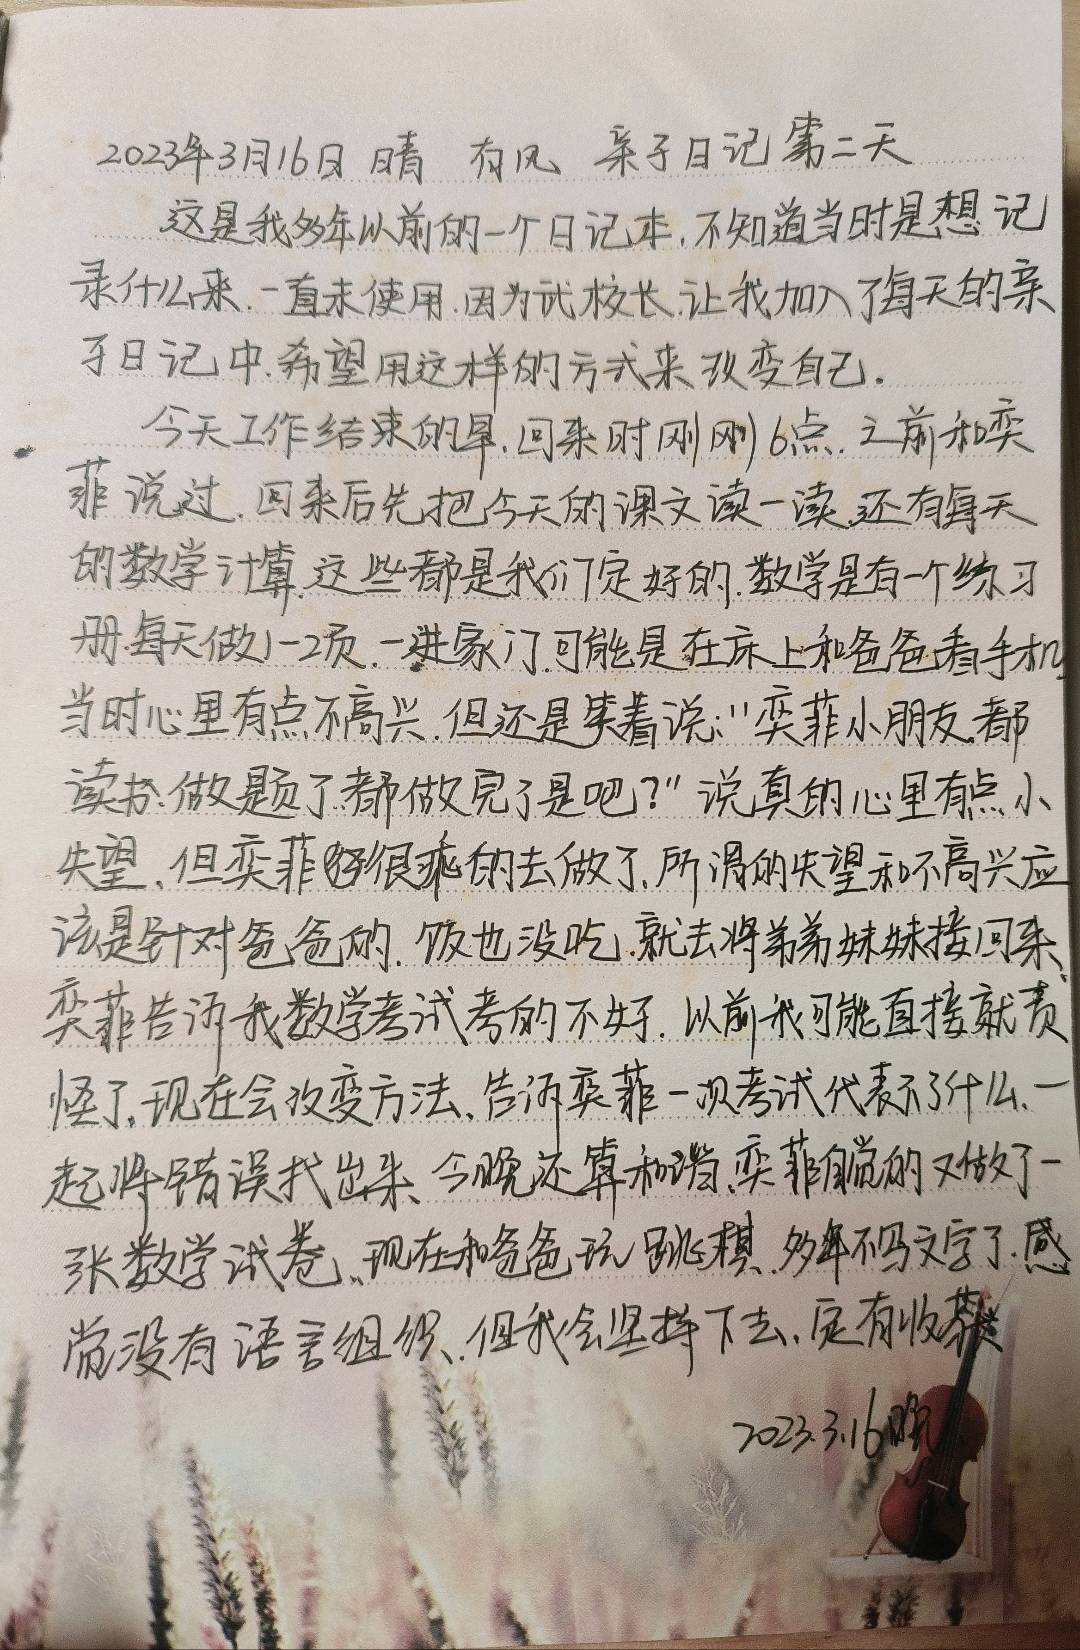 2023年3月16日 晴 有风 亲子日记第二天
这是我多年以前的一个日记本.不知道当时是想记
录什么来.一直未使用.因为武校长.让我加入了每天的亲
子日记中.希望用这样的方式来改变自己.
今天工作结束的早.回来时刚刚6点.之前和奕
菲说过.回来后先把今天的课文读一读.还有每天
的数学计算.这些都是我们定好的.数学是有一个练习
册.每天做1-2页.一进家门.可能是在床上和爸爸看手机
当时心里有点不高兴.但还是笑着说:"奕菲小朋友.都
读书.做题了.都做完了是吧?"说真的心里有点小
失望、但奕菲很乖的去做了.所谓的失望和不高兴应
该是针对爸爸的.饭也没吃.就去将弟弟妹妹接回来.
奕菲告诉我数学考试考的不好.以前我可能直接就责
怪了.现在会改变方法、告诉奕菲一次考试代表不了什么、一
起将错误找出来、今晚还算和谐.奕菲自觉的又做了一
张数学试卷、现在和爸爸玩跳棋.多年不写文字了.感
觉没有语言组织.但我会坚持下去、定有收获
2023.3.16晚